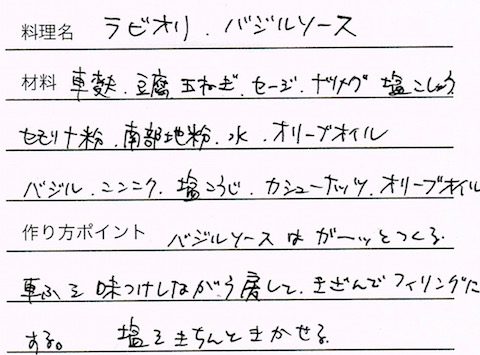 料理名 ラビオリ.バジルソース
材料 車麩.豆腐.玉ねぎ.セージ.ナツメグ 塩こしょう
セモリナ粉.南部地粉.水.オリーブオイル
バジル.ニンニク.塩こうじ.カシューナッツ.オリーブオイル
作り方ポイント バジルソースはガーッとつくる.
車ふを味つけしながら戻して.きざんでフィリングに
する。 塩をきちんときかせる.